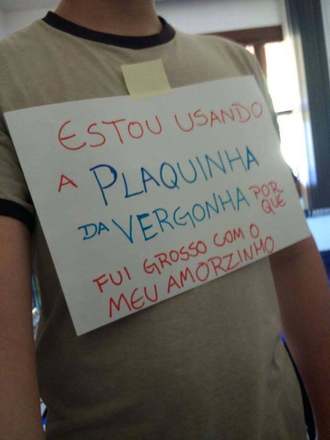 ESTOU USANDO
A PLAQUINHA
DA VERGONHA POR-
QUE
FUI GROSSO COM O
MEU AMORZINHO